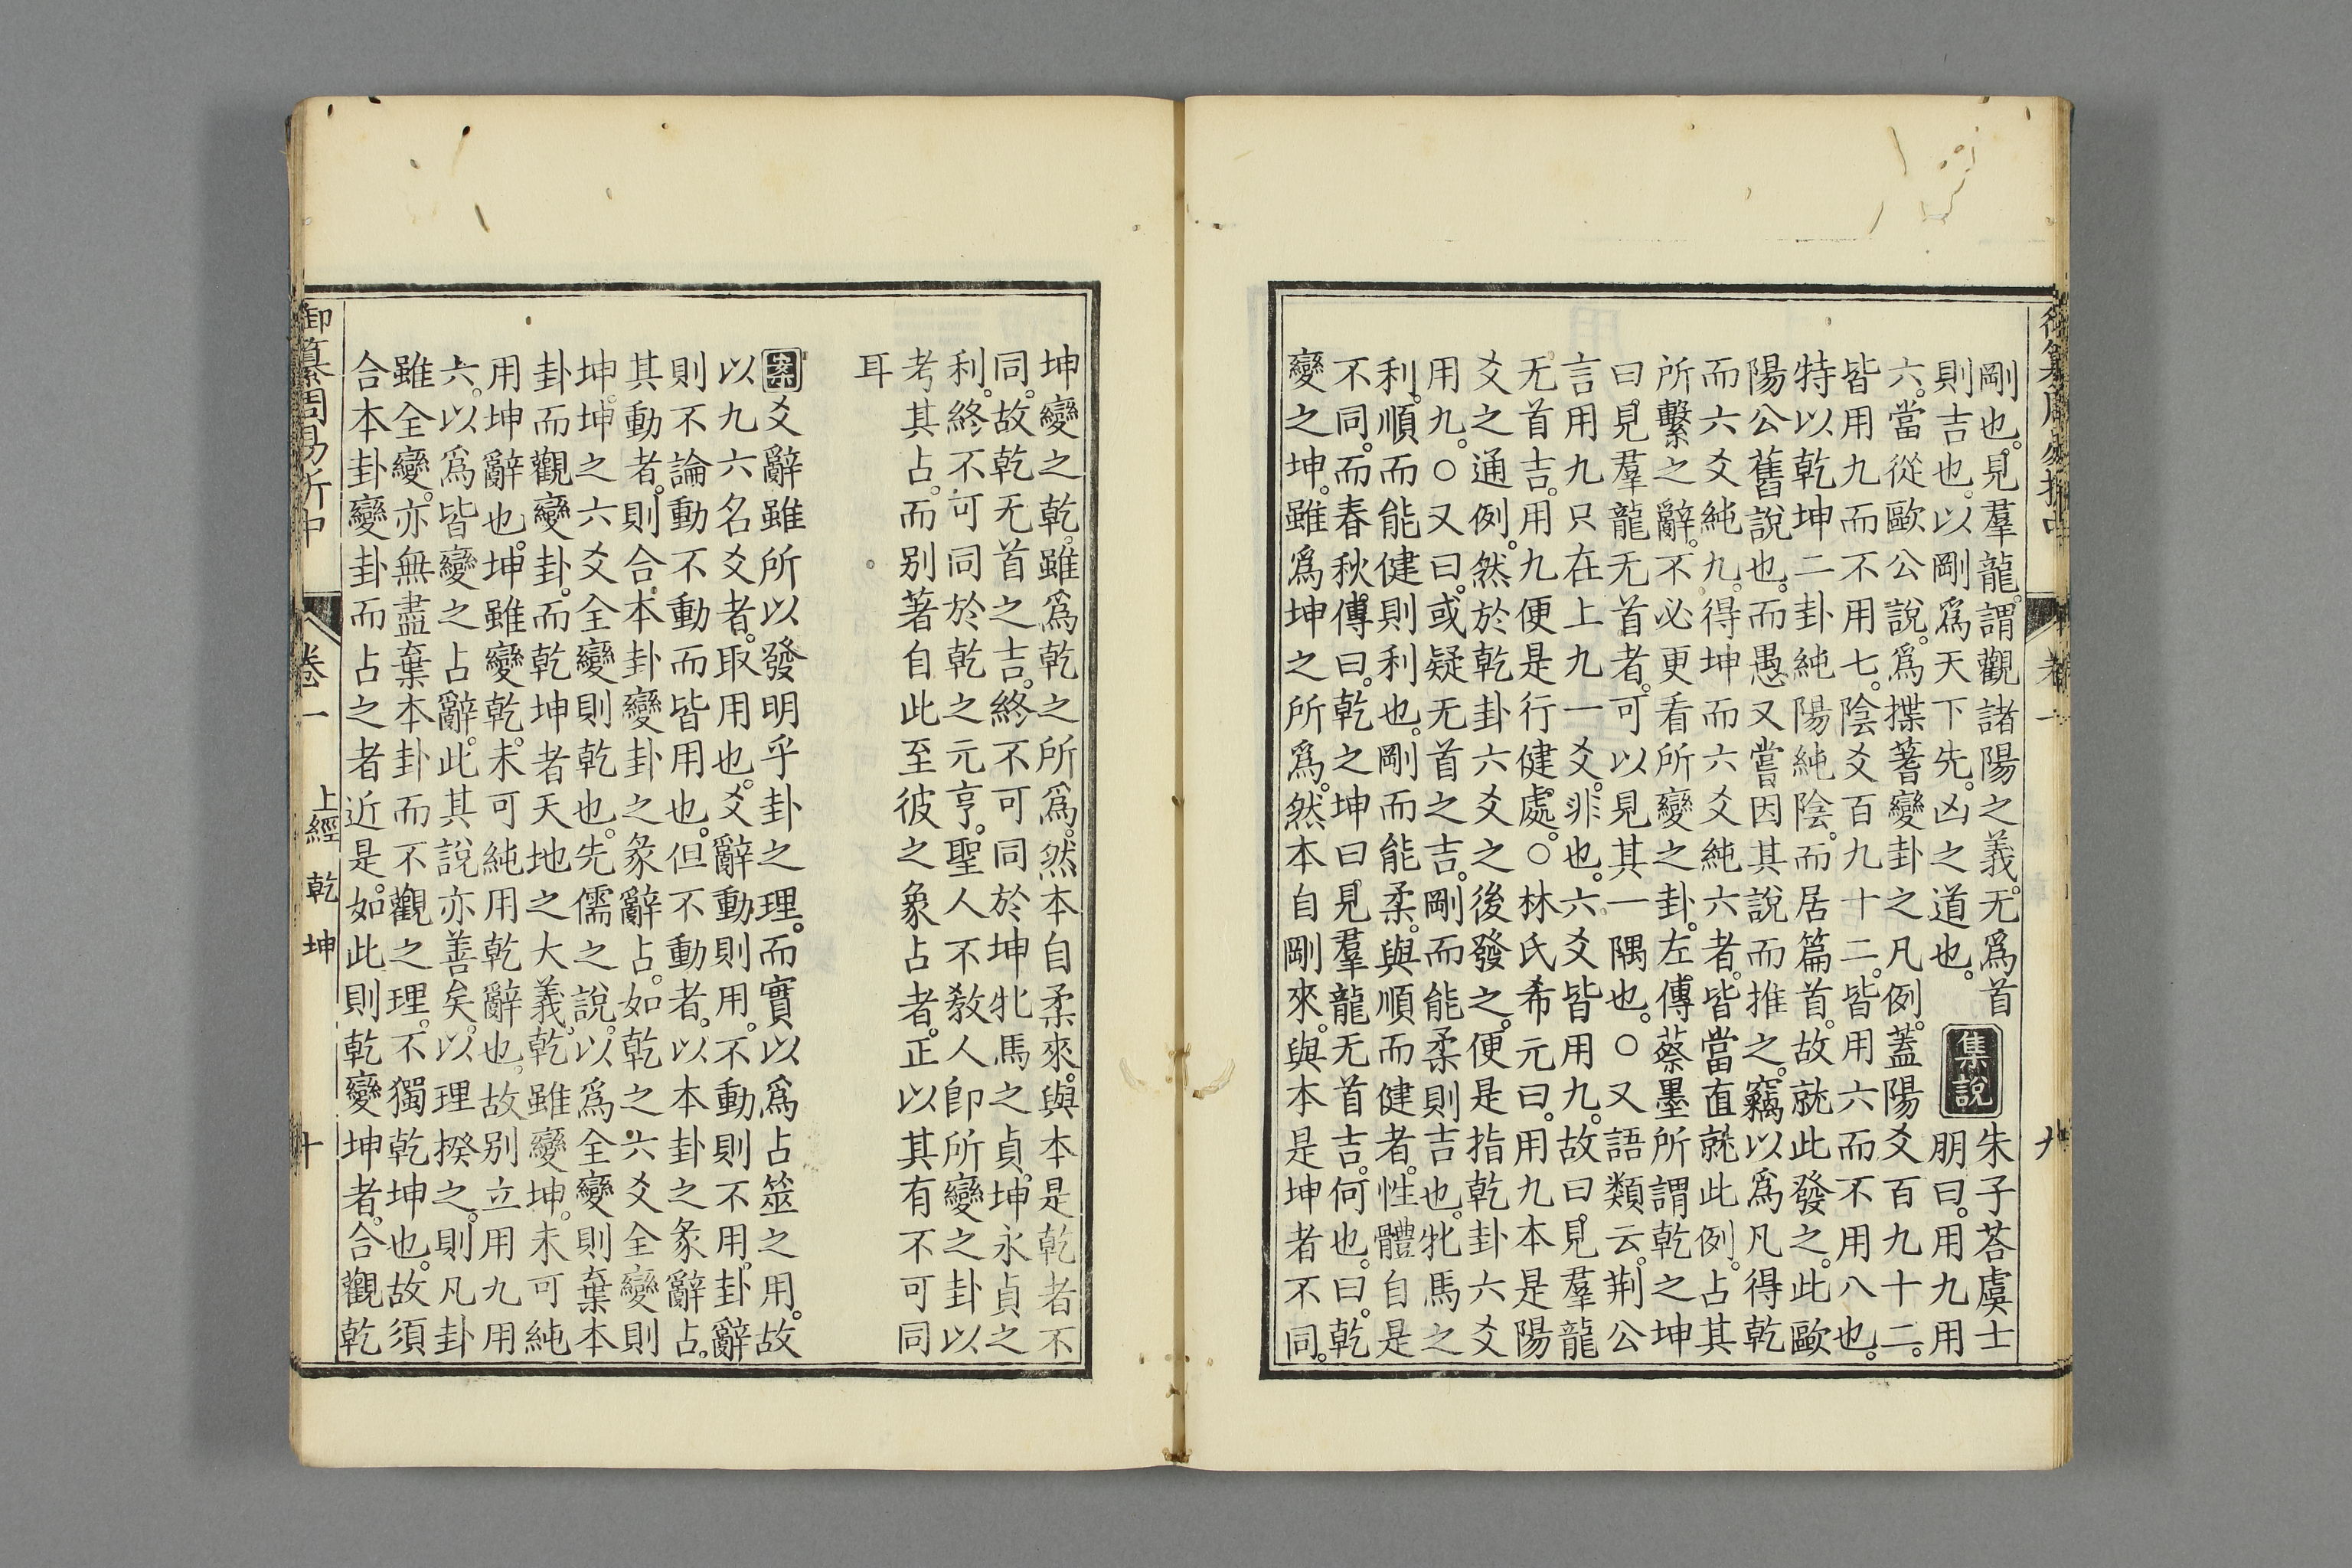 御纂周易折中　卷一　九
剛也。見羣龍。謂觀諸陽之義。无爲首
則吉也。以剛爲天下先。凶之道也。
集說
朱子荅虞士
朋曰。用九用
六。當從歐公說。爲揲蓍變卦之凡例。蓋陽爻百九十二。
皆用九而不用七。陰爻百九十二。皆用六而不用八也。
特以乾坤二卦純陽純陰。而居篇首。故就此發之。此歐
陽公舊說也。而愚又嘗因其說而推之。竊以爲凡得乾
而六爻純九。得坤而六爻純六者。皆當直就此例。占其
所繫之辭。不必更看所變之卦。左傳蔡墨所謂乾之坤
曰。見羣龍无首者。可以見其一隅也。○又語類云。荆公
言用九只在上九一爻。非也。六爻皆用九。故曰。見羣龍
无首吉。用九便是行健處。○林氏希元曰。用九本是陽
爻之通例。然於乾卦六爻之後發之。便是指乾卦六爻
用九。○又曰。或疑无首之吉。剛而能柔則吉也。牝馬之
利。順而能健則利也。剛而能柔。與順而健者。性體自是
不同。而春秋傳曰。乾之坤曰。見羣龍无首吉。何也。曰。乾
變之坤。雖爲坤之所爲。然本自剛來。與本是坤者不同。
坤變之乾。雖爲乾之所爲。然本自柔來。與本是乾者不
同。故乾无首之吉。終不可同於坤牝馬之貞。坤永貞之
利。終不可同於乾之元亨。聖人不敎人卽所變之卦以
考其占。而别著自此至彼之象占者。正以其有不可同
耳
案爻辭雖所以發明乎卦之理。而實以爲占筮之用。故
以九六名爻者。取用也。爻辭動則用。不動則不用。卦辭
則不論動不動而皆用也。但不動者。以本卦之彖辭占。
其動者。則合本卦變卦之彖辭占。如乾之六爻全變則
坤。坤之六爻全變則乾也。先儒之說。以爲全變則棄本
卦而觀變卦。而乾坤者天地之大義。乾雖變坤。未可純
用坤辭也。坤雖變乾。未可純用乾辭也。故别立用九用
六。以爲皆變之占辭。此其說亦善矣。以理揆之。則凡卦
雖全變。亦無盡棄本卦而不觀之理。不獨乾坤也。故須
合本卦變卦而占之者近是。如此則乾變坤者。合觀乾
御纂周易折中　卷一　上經　乾　坤　十